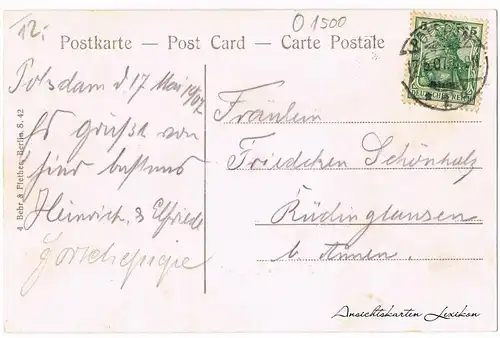 12.-
O 1500
Postkarte – Post Card – Carte Postale
Potsdam d 17 Mai 1907
Es grüßt von
hier bestens
Heinrich & Elfriede
Fräulein
Friedchen Schönholz
Rüdinghausen
b. Annen.
4 Behr & Flethen, Berlin S. 42
Ansichtskarten Lexikon